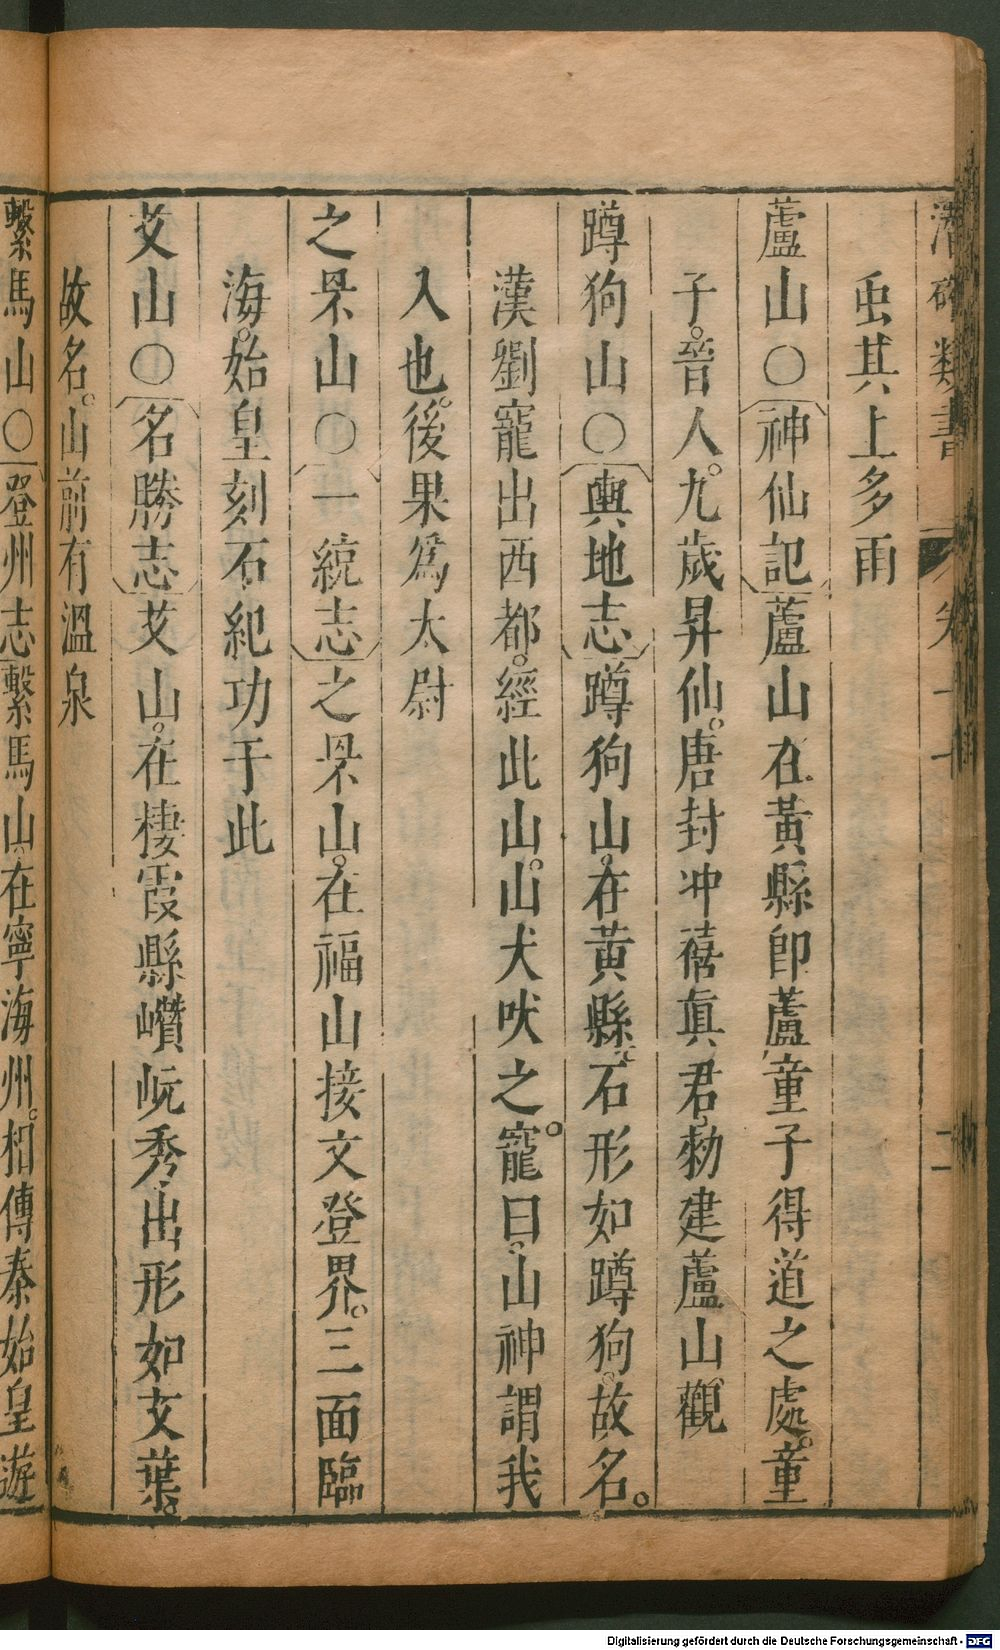 潛確類書 卷二十
二
虫其上多雨
蘆山〇神仙記蘆山在黃縣即蘆童子得道之處。童
子。晉人。九歲昇仙。唐封冲禧真君。勑建蘆山觀
蹲狗山〇輿地志蹲狗山。在黃縣。石形如蹲狗。故名。
漢劉寵出西都。經此山。山犬吠之。寵曰。山神謂我
入也。後果為太尉
之罘山〇一統志之罘山。在福山接文登界。三面臨
海。始皇刻石紀功于此
艾山〇名勝志艾山。在棲霞縣巑岏秀出形如艾葉。
故名。山前有溫泉
繫馬山〇登州志繫馬山。在寧海州。相傳秦始皇遊
Digitalisierung gefördert durch die Deutsche Forschungsgemeinschaft - DFG